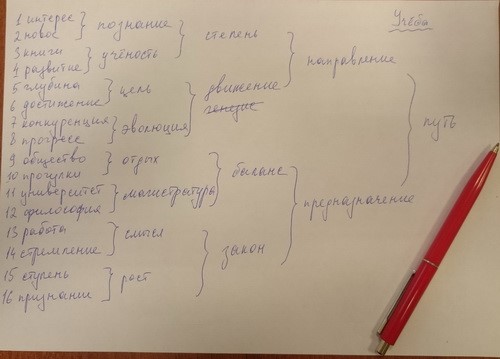 Учёба
1 интерес
2 новое
познание
3 книги
4 развитие
учёность
степень
5 глубина
6 достижение
цель
7 конкуренция
8 прогресс
эволюция
движение
генезис
направление
9 общество
10 прогулки
отдых
11 университет
12 философия
магистратура
баланс
13 работа
14 стремление
смысл
15 ступень
16 признание
рост
закон
предназначение
путь